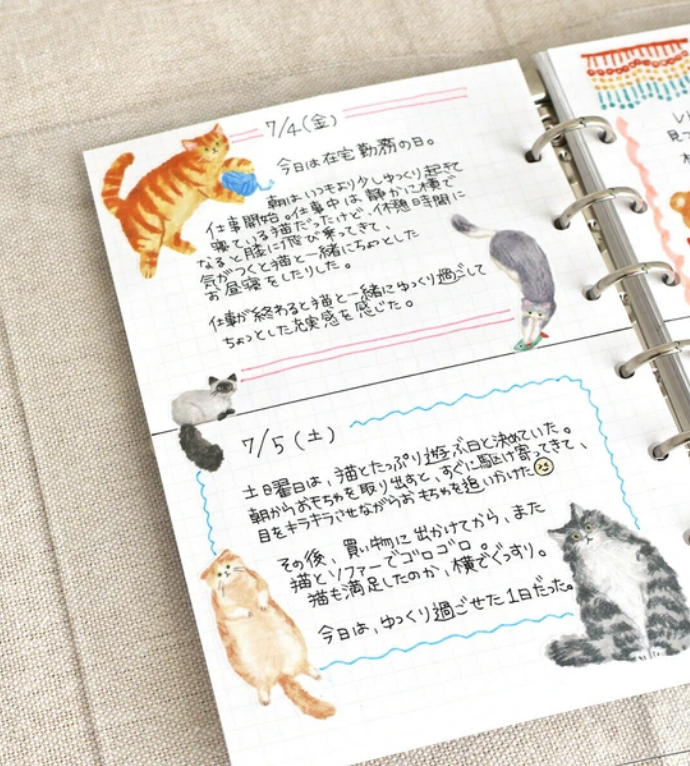 7/4(金)
今日は在宅勤務の日。
朝はいつもより少しゆっくり起きて
仕事開始。仕事中は静かに横で
寝ている猫だったけど、休憩時間に
なると膝に飛び乗ってきて、
気がつくと猫と一緒にちょっとした
お昼寝をしたりした。
仕事が終わると猫と一緒にゆっくり過ごして
ちょっとした充実感を感じた。
7/5(土)
土曜日は、猫とたっぷり遊ぶ日と決めていた。
朝からおもちゃを取り出すと、すぐに駆け寄ってきて、
目をキラキラさせながらおもちゃを追いかけた
その後、買い物に出かけてから、また
猫とソファーでゴロゴロ。
猫も満足したのか、横でぐっすり。
今日は、ゆっくり過ごせた1日だった。